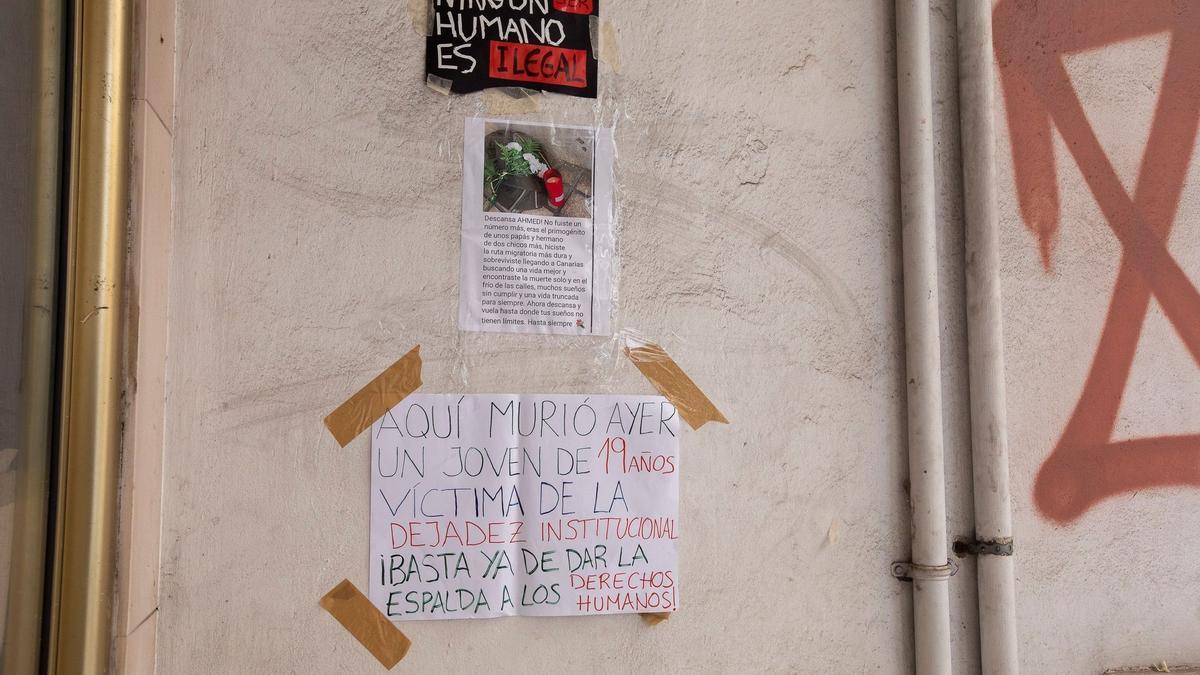 NINGÚN SER
HUMANO
ES ILEGAL
Descansa AHMED! No fuiste un
número más, eras el primogénito
de unos papás y hermano
de dos chicos más, hiciste
la ruta migratoria más dura y
sobreviviste llegando a Canarias
buscando una vida mejor y
encontraste la muerte solo y en el
frío de las calles, muchos sueños
sin cumplir y una vida truncada
para siempre. Ahora descansa y
vuela hasta donde tus sueños no
tienen límites. Hasta siempre
AQUÍ MURIÓ AYER
UN JOVEN DE 19 AÑOS
VÍCTIMA DE LA
DEJADEZ INSTITUCIONAL
¡BASTA YA DE DAR LA
ESPALDA A LOS DERECHOS
HUMANOS!